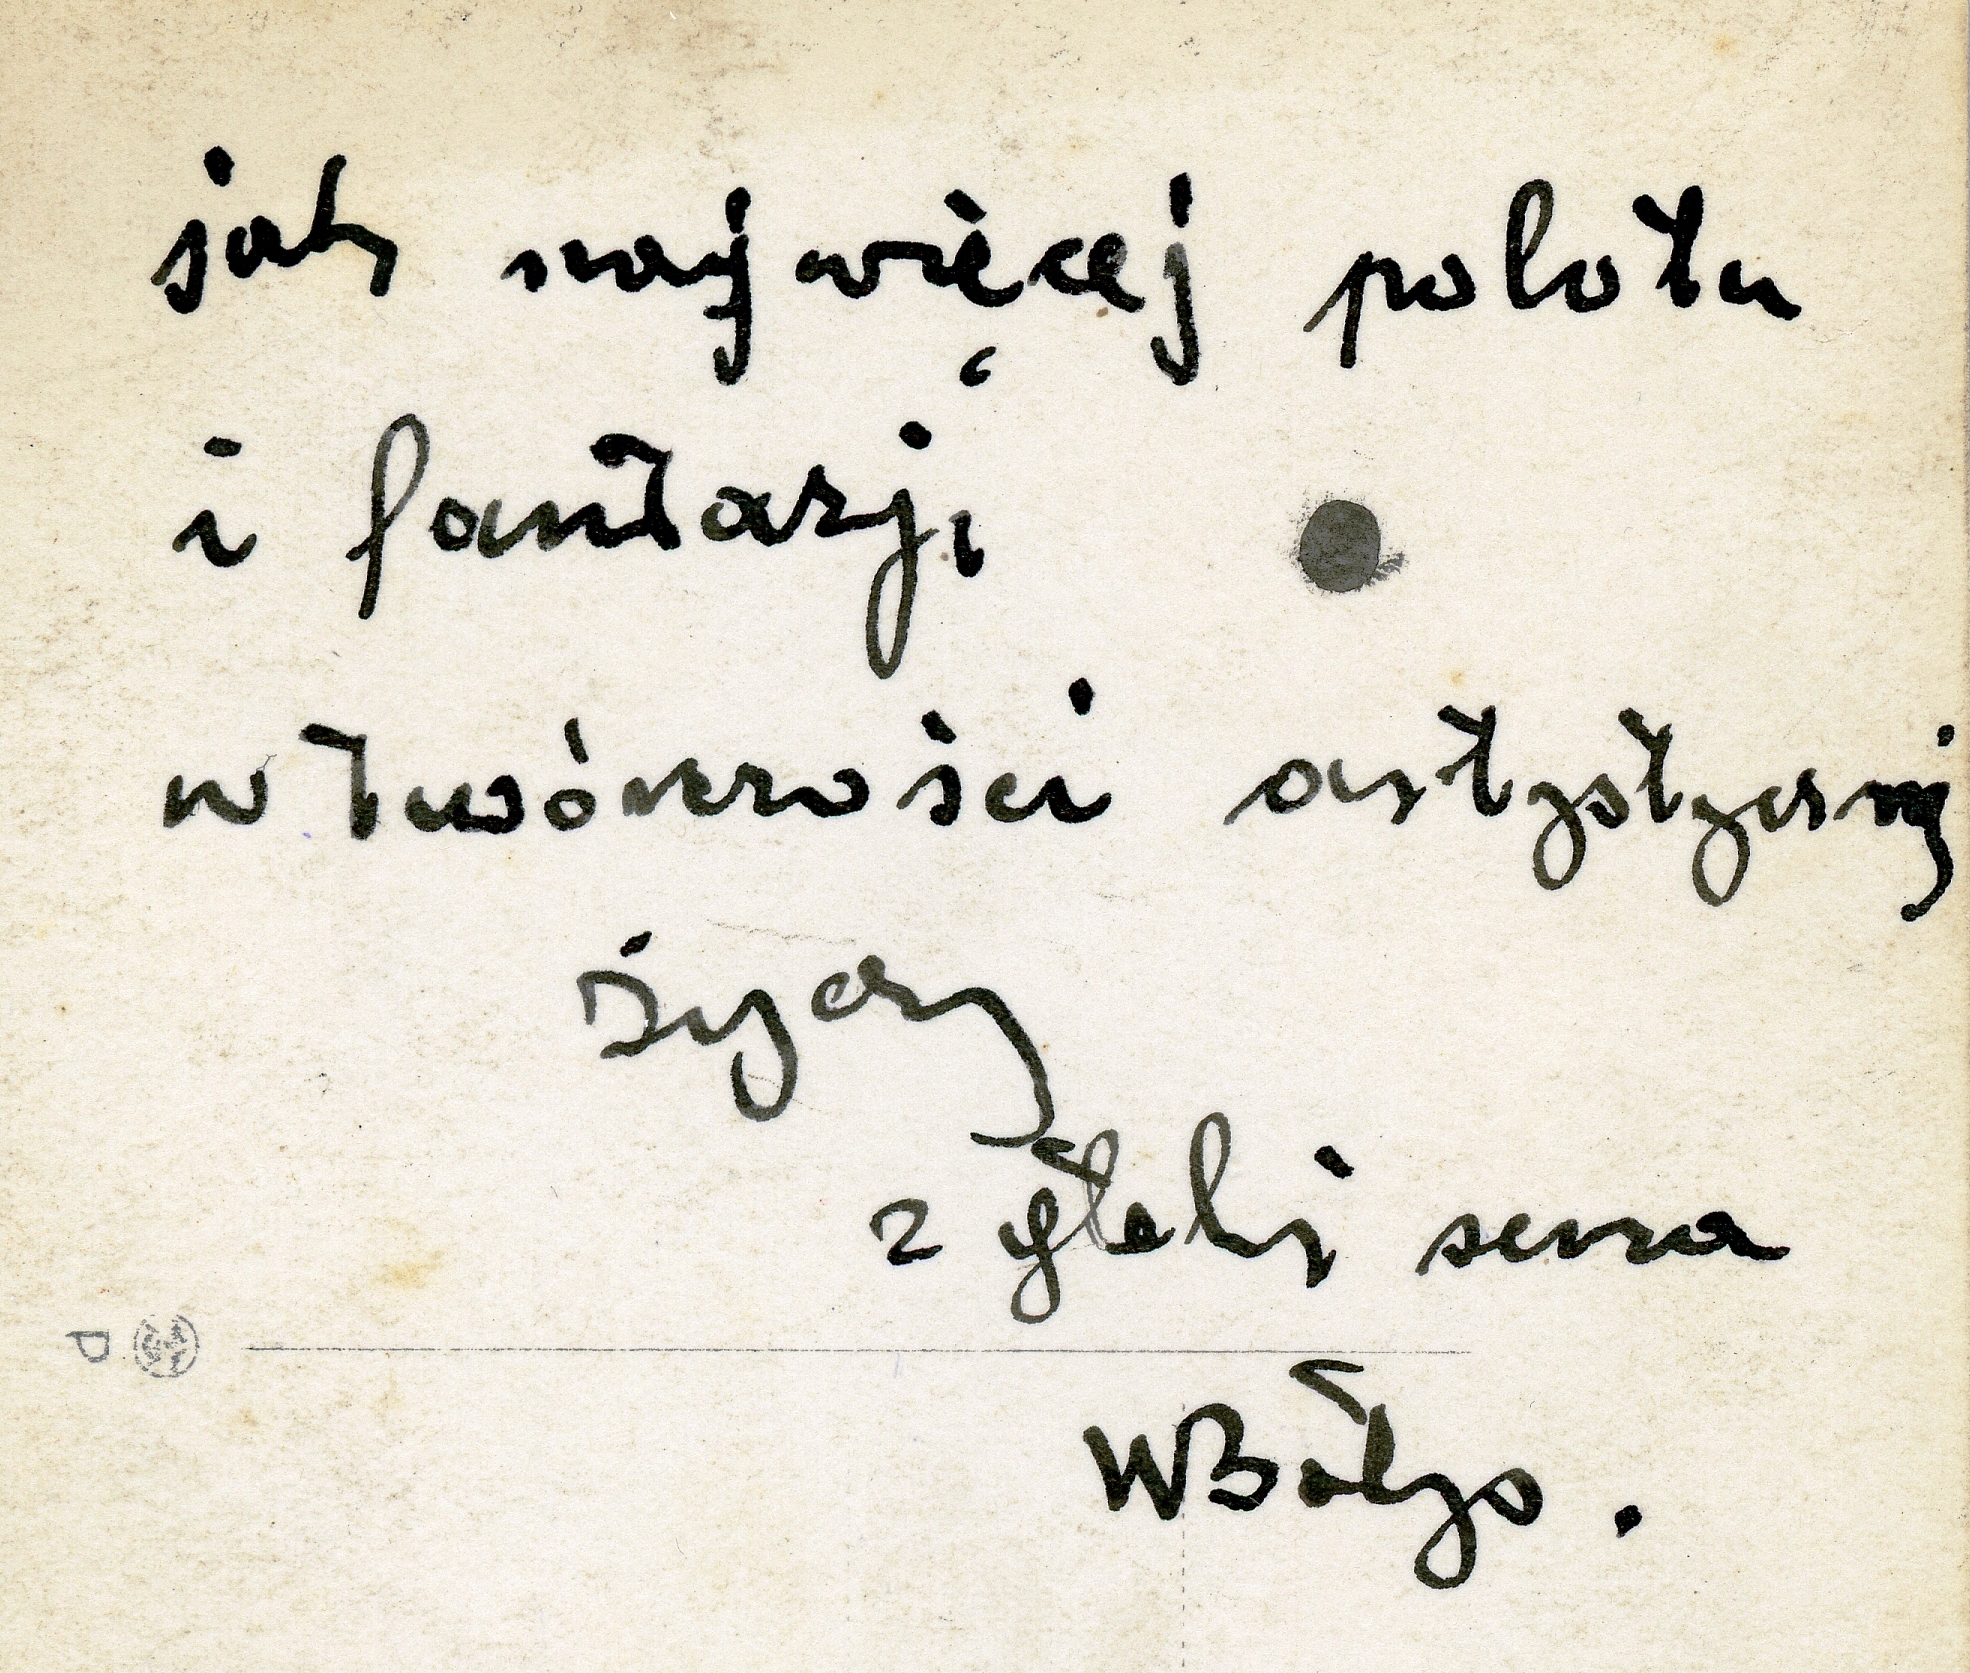 jak najwięcej polotu
i fantazji
w twórczości artystycznej
życzy
z głębi serca